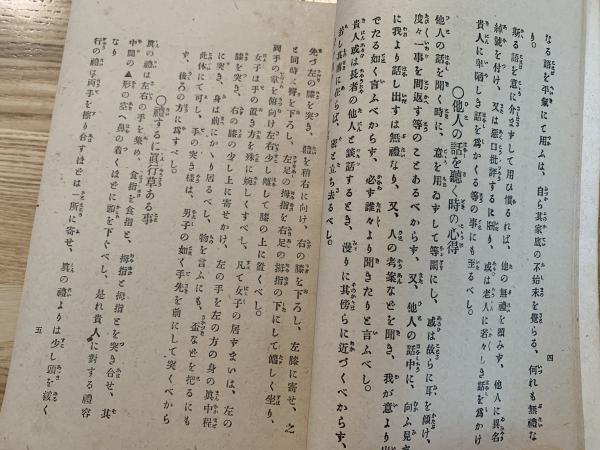 なる語を平氣にて用ふは、自ら其家庭の不始末を覺らる、何れも無禮な
り。
斯る語を意に介まずして用ひ慣るれば、他の無禮を顧みず、他人に異名
綽號を付け、又は惡口批評するに至り、或は老人に若々しき話を爲かけ
貴人に卑陋しき話を爲かくる等の事にも至るべし。
〇他人の話を聽く時の心得
他人の話を聞く時に、意を用ゐずして等閑にし、或は故らに耳を傾け、
度々一事を問返す等のことあるべからず、又、他人の話中に、向ふ見ず
に我より話し出すは無禮なり、又、人の考案などを聞き、我が意より出
でたる如く言ふべからず、必ず誰々より聞きたりと言ふべし。
貴人或は長者の他人と談話するとき、漫りに其傍らに近づくべからず、
若し其席に在らば、密と立ち去るべし。
四
先づ左の膝を突き、體を稍右に向け、右の膝を下ろし、左膝に寄せ、之
と同時に臀を下ろし、左足の拇指を右足の拇指の下にして嫺しく坐り、
兩手の掌を俯向け左右少し離して膝の上に置くべし。
女子は手の置き方を殊に婉しくすべし、凡て女子の居ずまいは、左の
膝を突き、右の膝の少し上に寄せかけ、左の手を左の方の身の眞中程
に突き、身は前にかゝり居るべし、物を言ふにも、盃などを把るにも
此体にて可し、手の突き樣は、男子の如く手先を前にして突くべから
ず、後ろの方に爲すべし。
〇禮するに眞行草ある事
眞の禮は左右の手を集め、食指を食指と、拇指と拇指とを突き合せ、其
中間の▲形の空へ鼻の着くほどに頭を下ぐべし、是れ貴人に對する禮容
なり
行の禮は兩手を擦り合すほどは一所に寄せ、眞の禮よりは少し頭を緩く
五